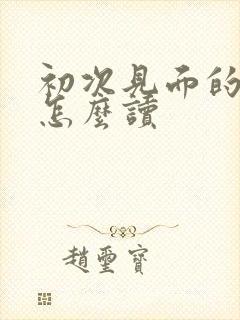 初次見面的
怎麼讀
趙璽寶